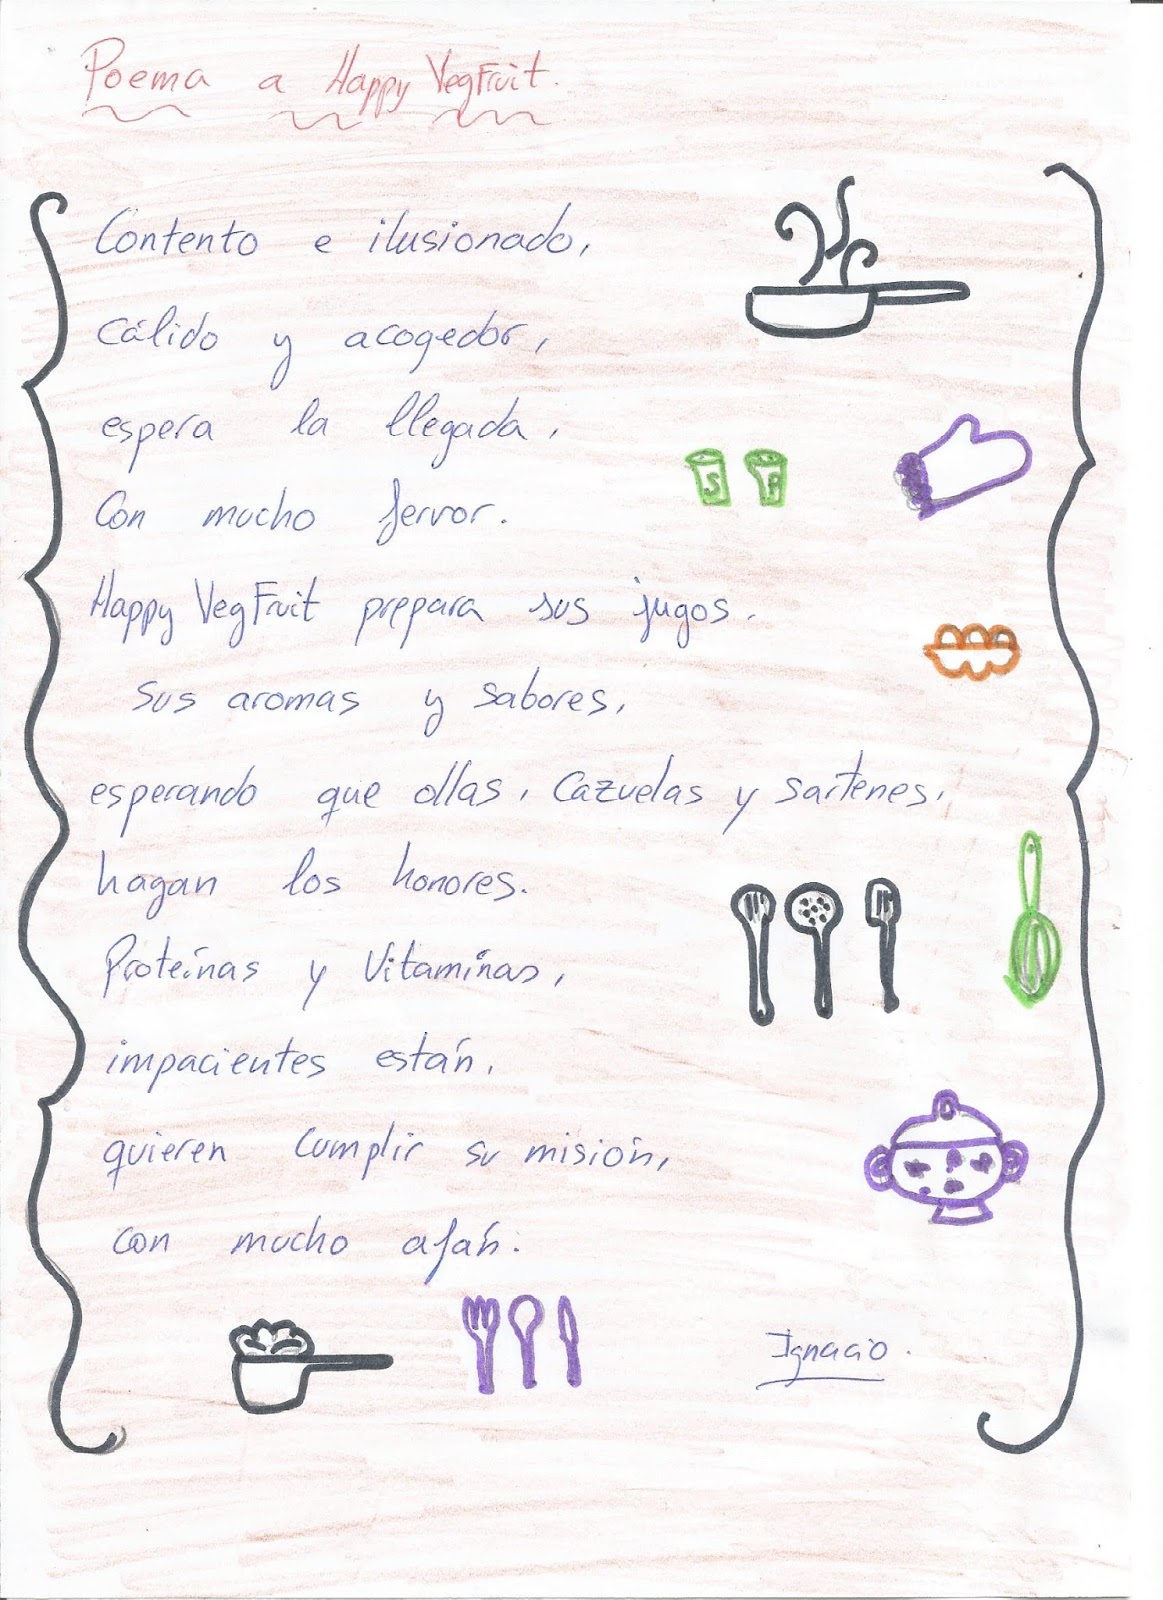 Poema a Happy VegFruit.
Contento e ilusionado,
Cálido y acogedor,
espera la llegada,
Con mucho fervor.
Happy VegFruit prepara sus jugos.
sus aromas y sabores,
esperando que ollas, cazuelas y sartenes,
hagan los honores.
Proteínas y Vitaminas,
impacientes están,
quieren cumplir su misión,
con mucho afán.
Ignacio.
S P